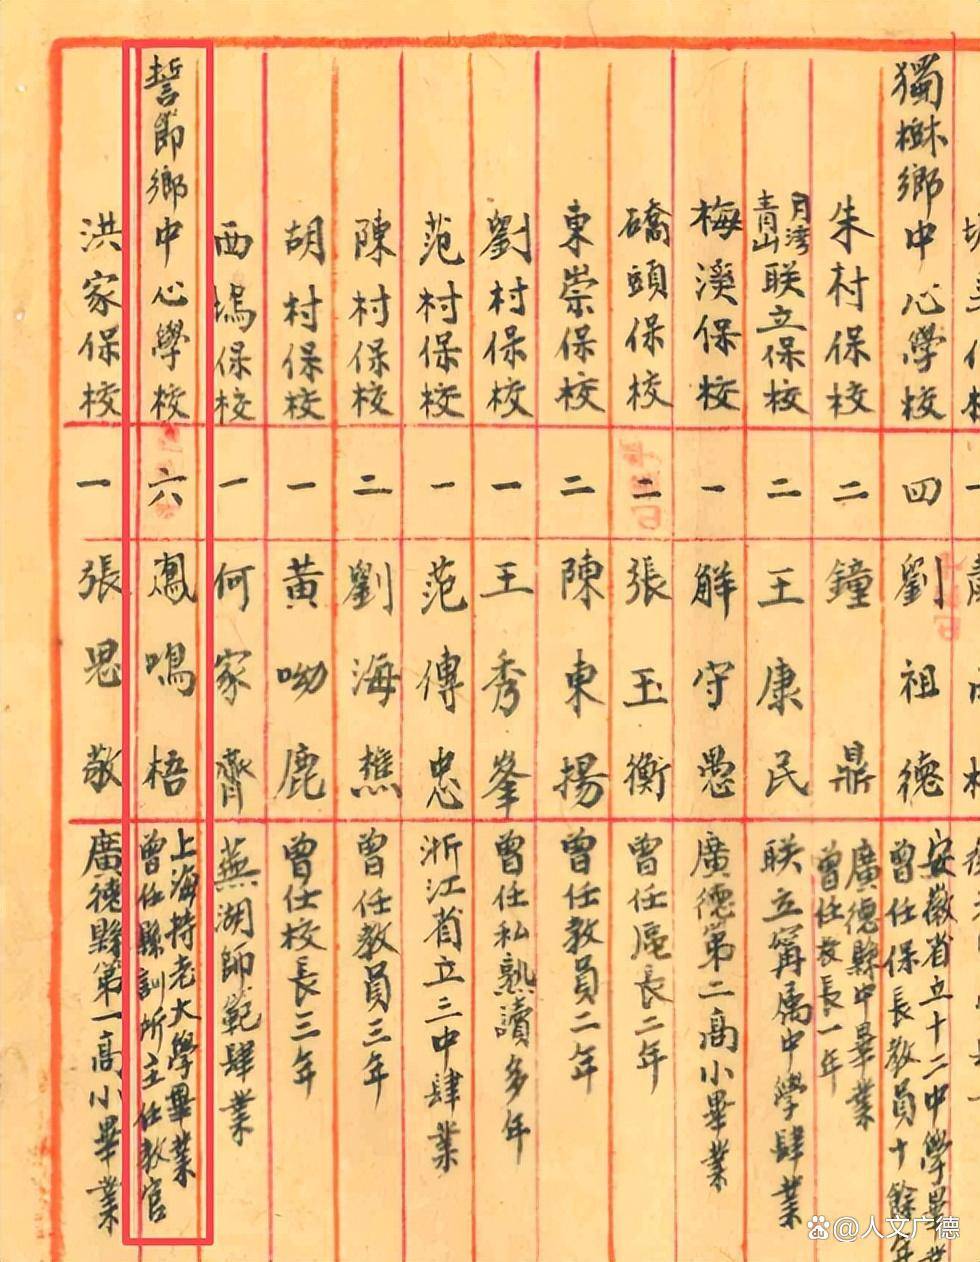 獨樹鄉中心學校 四 劉祖德 安徽省立十二中學畢業
曾任保長教員十餘年
朱村保校 二 鐘鼎 廣德縣中畢業
曾任校長一年
月湾青山联立保校 二 王康民 联立甯属中学肄業
梅溪保校 一 解守愚 廣德第二高小畢業
礄頭保校 二 張玉衡 曾任區長二年
東崇保校 二 陳東揚 曾任教員二年
劉村保校 一 王秀峯 曾任私熟讀多年
范村保校 一 范傳忠 浙江省立三中肄業
陳村保校 二 劉海樵 曾任教員三年
胡村保校 一 黃呦鹿 曾任校長三年
西塢保校 一 何家齊 蕪湖師範肄業
誓節鄉中心學校 六 鳳鳴梧 上海持老大學畢業
曾任縣訓所主任教官
洪家保校 一 張思敬 廣德縣第一高小畢業
@人文广德